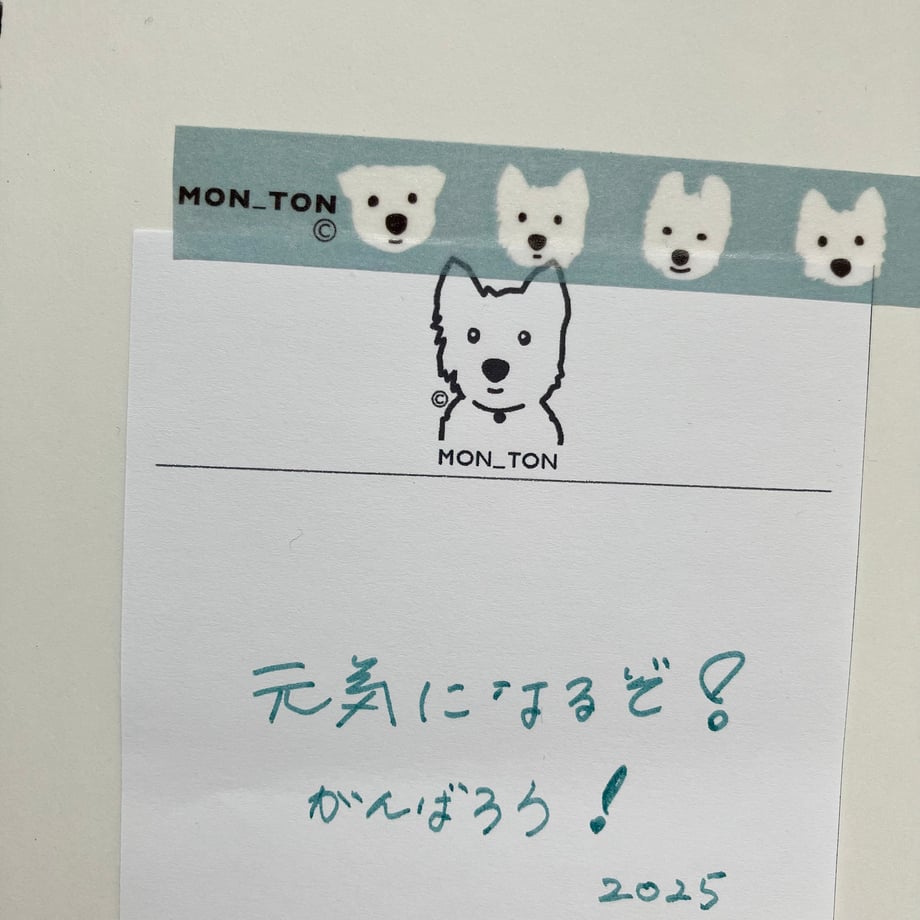 MON_TON
©
©
MON_TON
元気になるぞ!
がんばろう!
2025